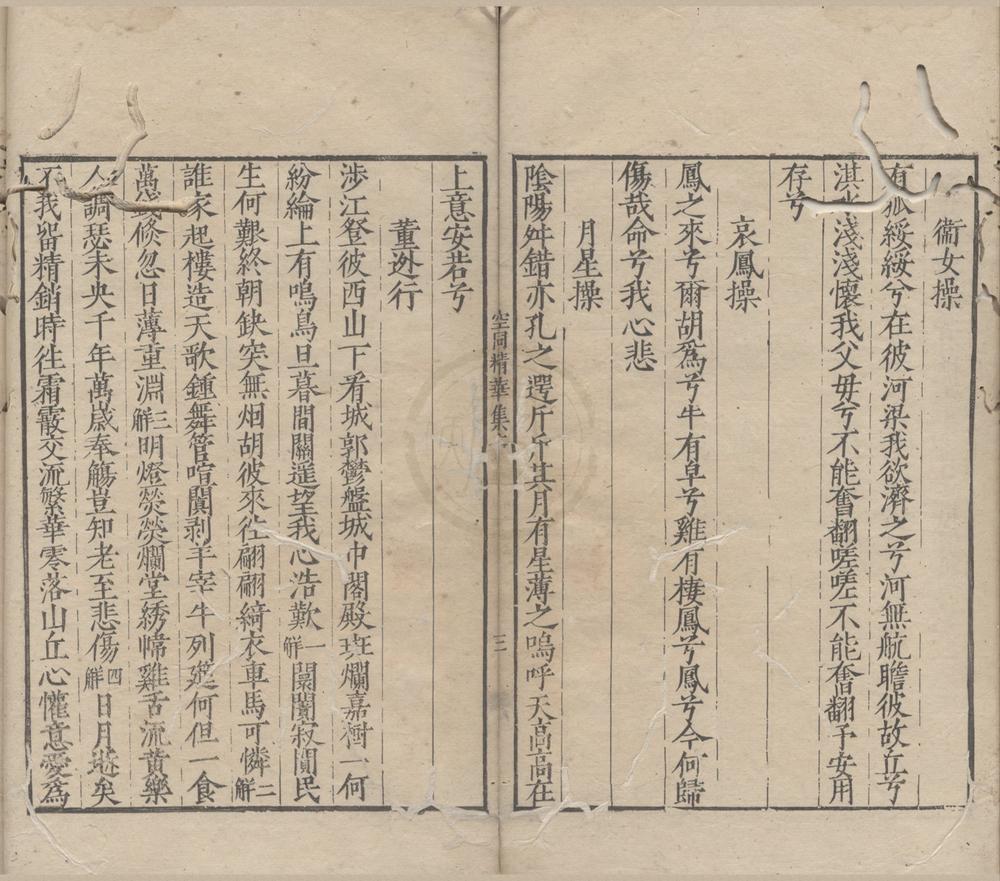 衞女操
有狐綏綏兮在彼河梁我欲濟之兮河無航瞻彼故丘兮
淇水淺淺懷我父毋兮不能奮翻嗟嗟不能奮翻予安用
存兮
哀鳳操
鳳之來兮爾胡爲兮牛有皁兮雞有棲鳳兮鳳兮今何歸
傷哉命兮我心悲
月星操
陰陽舛錯亦孔之遌斤斤其月有星薄之嗚呼天高高在
上意安若兮
空同精華集
三
董逃行
涉江登彼西山下看城郭鬱盤城中閣殿斑爛嘉樹一何
紛綸上有鳴鳥旦暮間關遥望我心浩歎一解闤闠寂閴民
生何艱終朝缺突無烟胡彼來徃翩翩綺衣車馬可憐二解
誰家起樓造天歌鍾舞管喧闐剥羊宰牛列筵何但一食
萬錢倐忽日薄重淵三解明燈熒熒爛堂綉幃雞舌流黄樂
人調瑟未央千年萬歳奉觴豈知老至悲傷四解日月逝矣
不我留精銷時徃霜霰交流繁華零落山丘心懽意愛爲